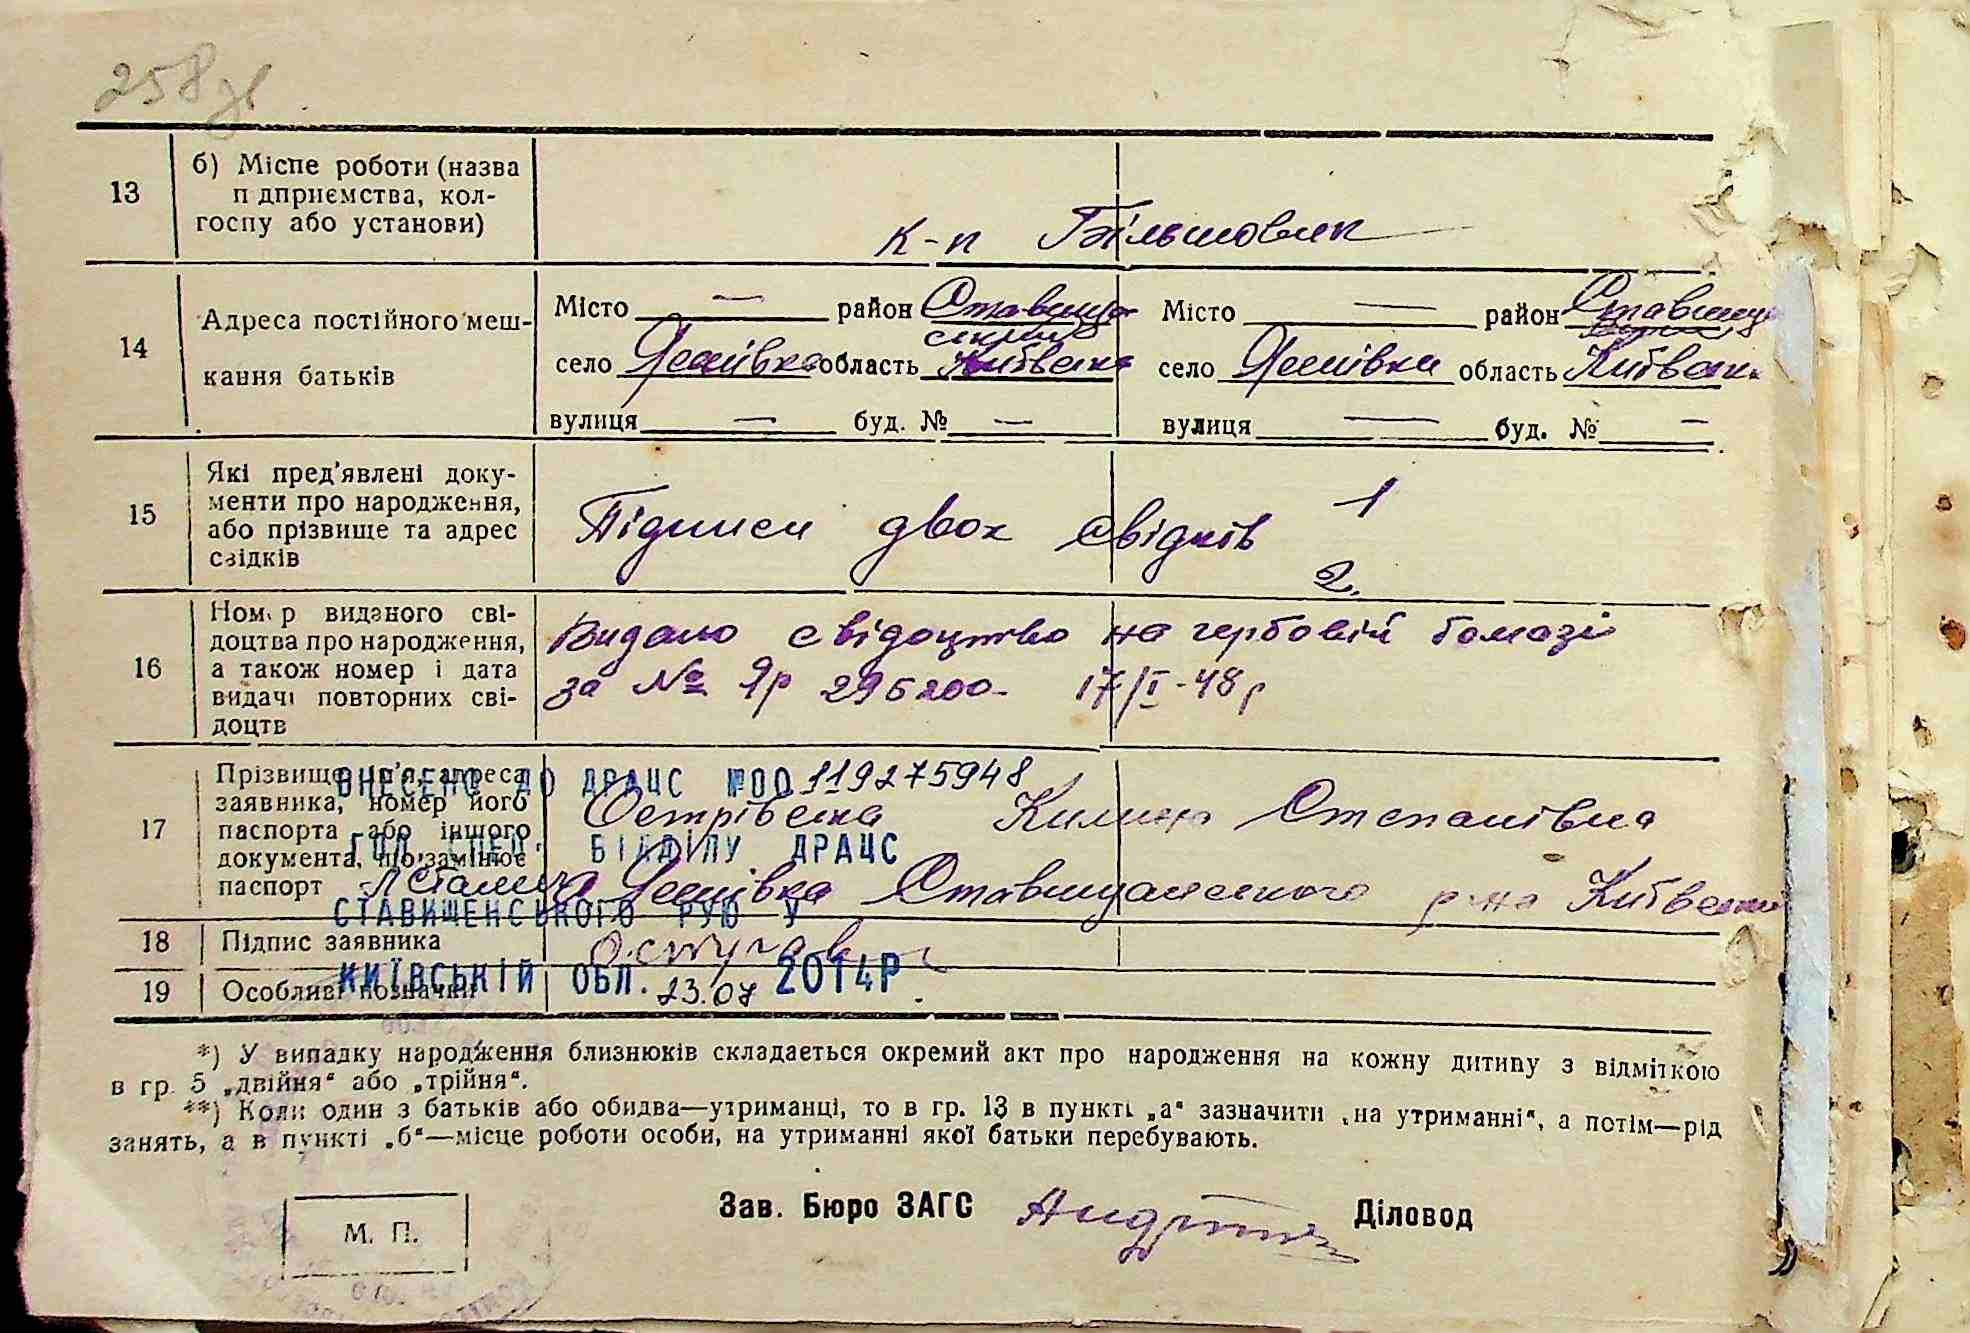 258
13 б) Місце роботи (назва
п дприємства, кол-
госпу або установи)
к-п Більшовик
14 Адреса постійного меш-
кання батьків
Місто — район Ставищан
ський
село Яснівка область Київська
вулиця — буд. № —
Місто — район Ставищ
село Яснівка область Київська
вулиця — буд. № —
15 Які пред'явлені доку-
менти про народження,
або прізвище та адрес
свідків
Підписи двох свідків 1
2.
16 Ном р виданого сві-
доцтва про народження,
а також номер і дата
видачі повторних сві-
доцтв
Видано свідоцтво на гербовій бомазі
за № Яр 296200- 17/I-48р
17 Прізвище, ім'я, адреса
заявника, номер його
паспорта або іншого
документа, що замінює
паспорт
Острівська Килина Степанівна
Яснівка Ставищанського р-на Київської
ВНЕСЕНО ДО ДРАЦС №00119275948
ГОЛ. СПЕЦ. ВІДДІЛУ ДРАЦС
СТАВИЩЕНСЬКОГО РУЮ У
КИЇВСЬКІЙ ОБЛ. 23.07 2014Р.
18 Підпис заявника
19 Особливі позначки
*) У випадку народження близнюків складається окремий акт про народження на кожну дитину з відміткою
в гр. 5 „двійня“ або „трійня“.
**) Коли один з батьків або обидва—утриманці, то в гр. 13 в пункті „а“ зазначити „на утриманні“, а потім—рід
занять, а в пункті „б“—місце роботи особи, на утриманні якої батьки перебувають.
Зав. Бюро ЗАГС Діловод
М. П.